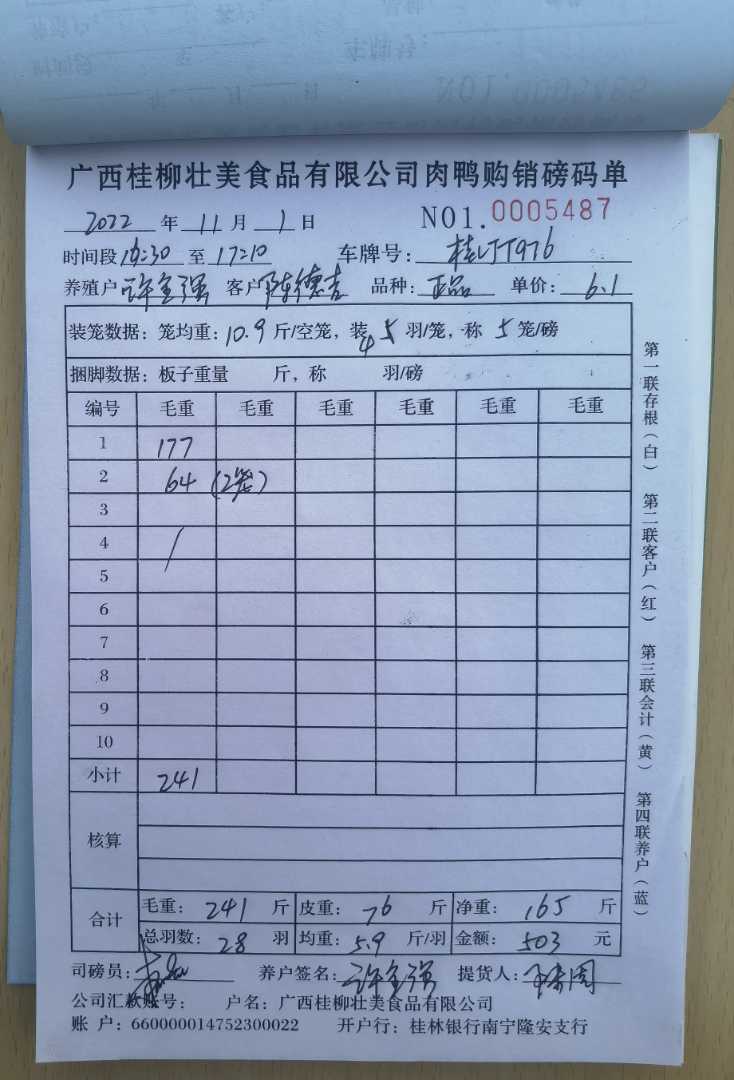 广西桂柳壮美食品有限公司肉鸭购销磅码单
2022 年 11 月 1 日 NO1. 0005487
时间段 16:30 至 17:10 车牌号: 桂JJT976
养殖户 许金强 客户 陈德吉 品种: 正品 单价: 6.1
装笼数据: 笼均重: 10.9 斤/空笼, 装 4 5 羽/笼, 称 5 笼/磅
捆脚数据: 板子重量 斤, 称 羽/磅
编号 毛重 毛重 毛重 毛重 毛重 毛重
1 177
2 64 (2笼)
3
4 /
5
6
7
8
9
10
小计 241
核算
合计
毛重: 241 斤 皮重: 76 斤 净重: 165 斤
总羽数: 28 羽 均重: 5.9 斤/羽 金额: 503 元
司磅员: 养户签名: 许金强 提货人:
公司汇款账号: 户名: 广西桂柳壮美食品有限公司
账 户: 660000014752300022 开户行: 桂林银行南宁隆安支行
第一联存根(白) 第二联客户(红) 第三联会计(黄) 第四联养户(蓝)